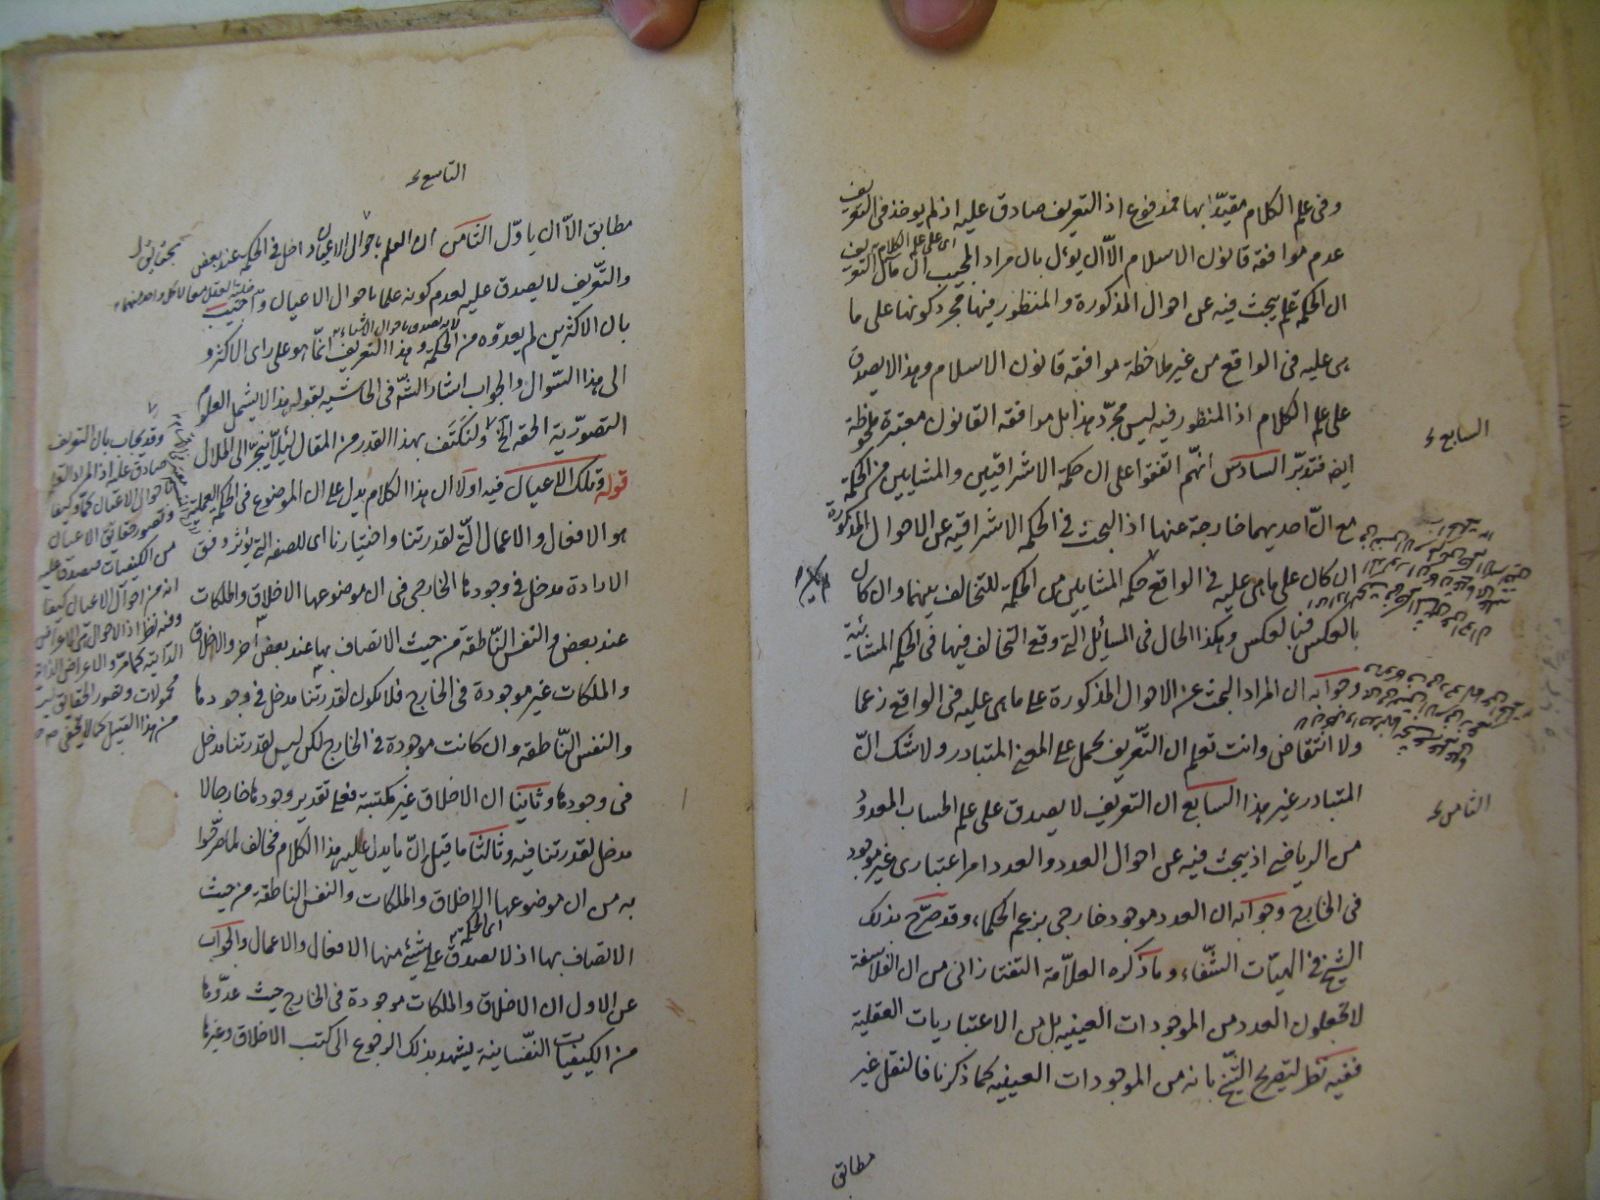 وفى علم الكلام مقيّدا بها فمدفوع اذ التعريف صادق عليه اذ لم يوخذ فى التعريف
عدم موافقة قانون الاسلام الّا ان يوءل بان مراد المجيب ان مآل التعريف
اى على علم الكلام
ان الحكمة علم يبحث فيه عن احوال المذكورة والمنظور فيها مجرد كونها على ما
هى عليه فى الواقع من غير ملاحظة موافقة قانون الاسلام وهذا لا يصدق
على علم الكلام اذ المنظور فيه ليس مجرّد هذا بل موافقة القانون معتبرة ملحوظة
السابع
ايضا فتدبّر السادس انّهم اتفقوا على ان حكمة الاشراقيين والمشايين من الحكمة
مع انّ احديهما خارجة عنها اذ البحث فى الحكمة الاشراقية عن الاحوال المذكورة
ان كان على ما هى عليه فى الواقع حكمة المشايين من الحكمة للتخالف بينهما وان كان
بالعكس فبالعكس وهكذا الحال فى المسائل التى وقع التخالف فيها فى الحكمة المشائية
وجوابه ان المراد البحث عن الاحوال المذكورة على ما هى عليه فى الواقع زعما
ولا انتقاض وانت تعلم ان التّعريف يحمل على المعنى المتبادر ولا شك انّ
المتبادر غير هذا السابع ان التعريف لا يصدق على علم الحساب المعدود
الثامن
من الرياضى اذ يبحث فيه عن احوال العدد والعدد امر اعتبارى غير موجود
فى الخارج وجوابه ان العدد موجود خارجى بزعم الحكماء وقد صرّح بذلك
الشيخ فى الهيّات الشّفاء وما ذكره العلّامة التفتازانى من ان الفلاسفة
لا يجعلون العدد من الموجودات العينية بل من الاعتباريات العقلية
ففيه نظر لتصريح الشّيخ بانه من الموجودات العينية كما ذكرنا فالنقل غير
مطابق
التاسع
مطابق الّا ان ياوّل الثامن ان العلم باحوال الاعيان داخل فى الحكمة عند بعض
والتّعريف لا يصدق عليه لعدم كونه علما باحوال الاعيان واجيب
بان الاكثرين لم يعدّوه من الحكمة وهذا التعريف انّما هو على راى الاكثر و
الى هذا السّوال والجواب اشار الشّ فى الحاشية بقوله هذا لا يشمل العلوم
التصوّرية الحقة الخ ولنكتف بهذا القدر من المقال لئلّا ينجرّ الى الملال
قوله وتلك الاعيان فيه اولا ان هذا الكلام يدل على ان الموضوع فى الحكمة العملية
هو الافعال والاعمال التى لقدرتنا واختيارنا اى للصفة التى يؤثر وفق
الارادة مدخل فى وجودها الخارجى فى ان موضوعها الاخلاق والملكات
عند بعض والنفس النّاطقة من حيث الاتصاف بها عند بعض آخر والاخلاق
والملكات غير موجودة فى الخارج فلا يكون لقدرتنا مدخل فى وجودها
والنفس النّاطقة وان كانت موجودة فى الخارج لكن ليس لقدرتنا مدخل
فى وجودها وثانيا ان الاخلاق غير مكتسبة فعلى تقدير وجودها خارجا لا
مدخل لقدرتنا فيه وثالثا ما قيل انّ ما يدل عليه هذا الكلام مخالف لما صرّحوا
به من ان موضوعها الاخلاق والملكات والنفس الناطقة من حيث
الاتصاف بها اذ لا يصدق على شئ منها الافعال والاعمال والجواب
اى الحكمة
عن الاول ان الاخلاق والملكات موجودة فى الخارج حيث عدّوها
من الكيفيات النفسانية يشهد بذلك الرجوع الى كتب الاخلاق وغيرها
وقد يجاب بان التعريف
صادق عليه اذ المراد العلم
باحوال الاعيان كمّا وكيفا
وتصور حقائق الاعيان
من الكيفيات فيصدق عليه
انه من احوال الاعيان كيفا
وفيه نظر اذ الاحوال هى الاعراض
الذاتية كما مرّ والاعراض الذاتية
محمولات وتصور الحقائق ليست
من هذا القبيل كما لا يخفى